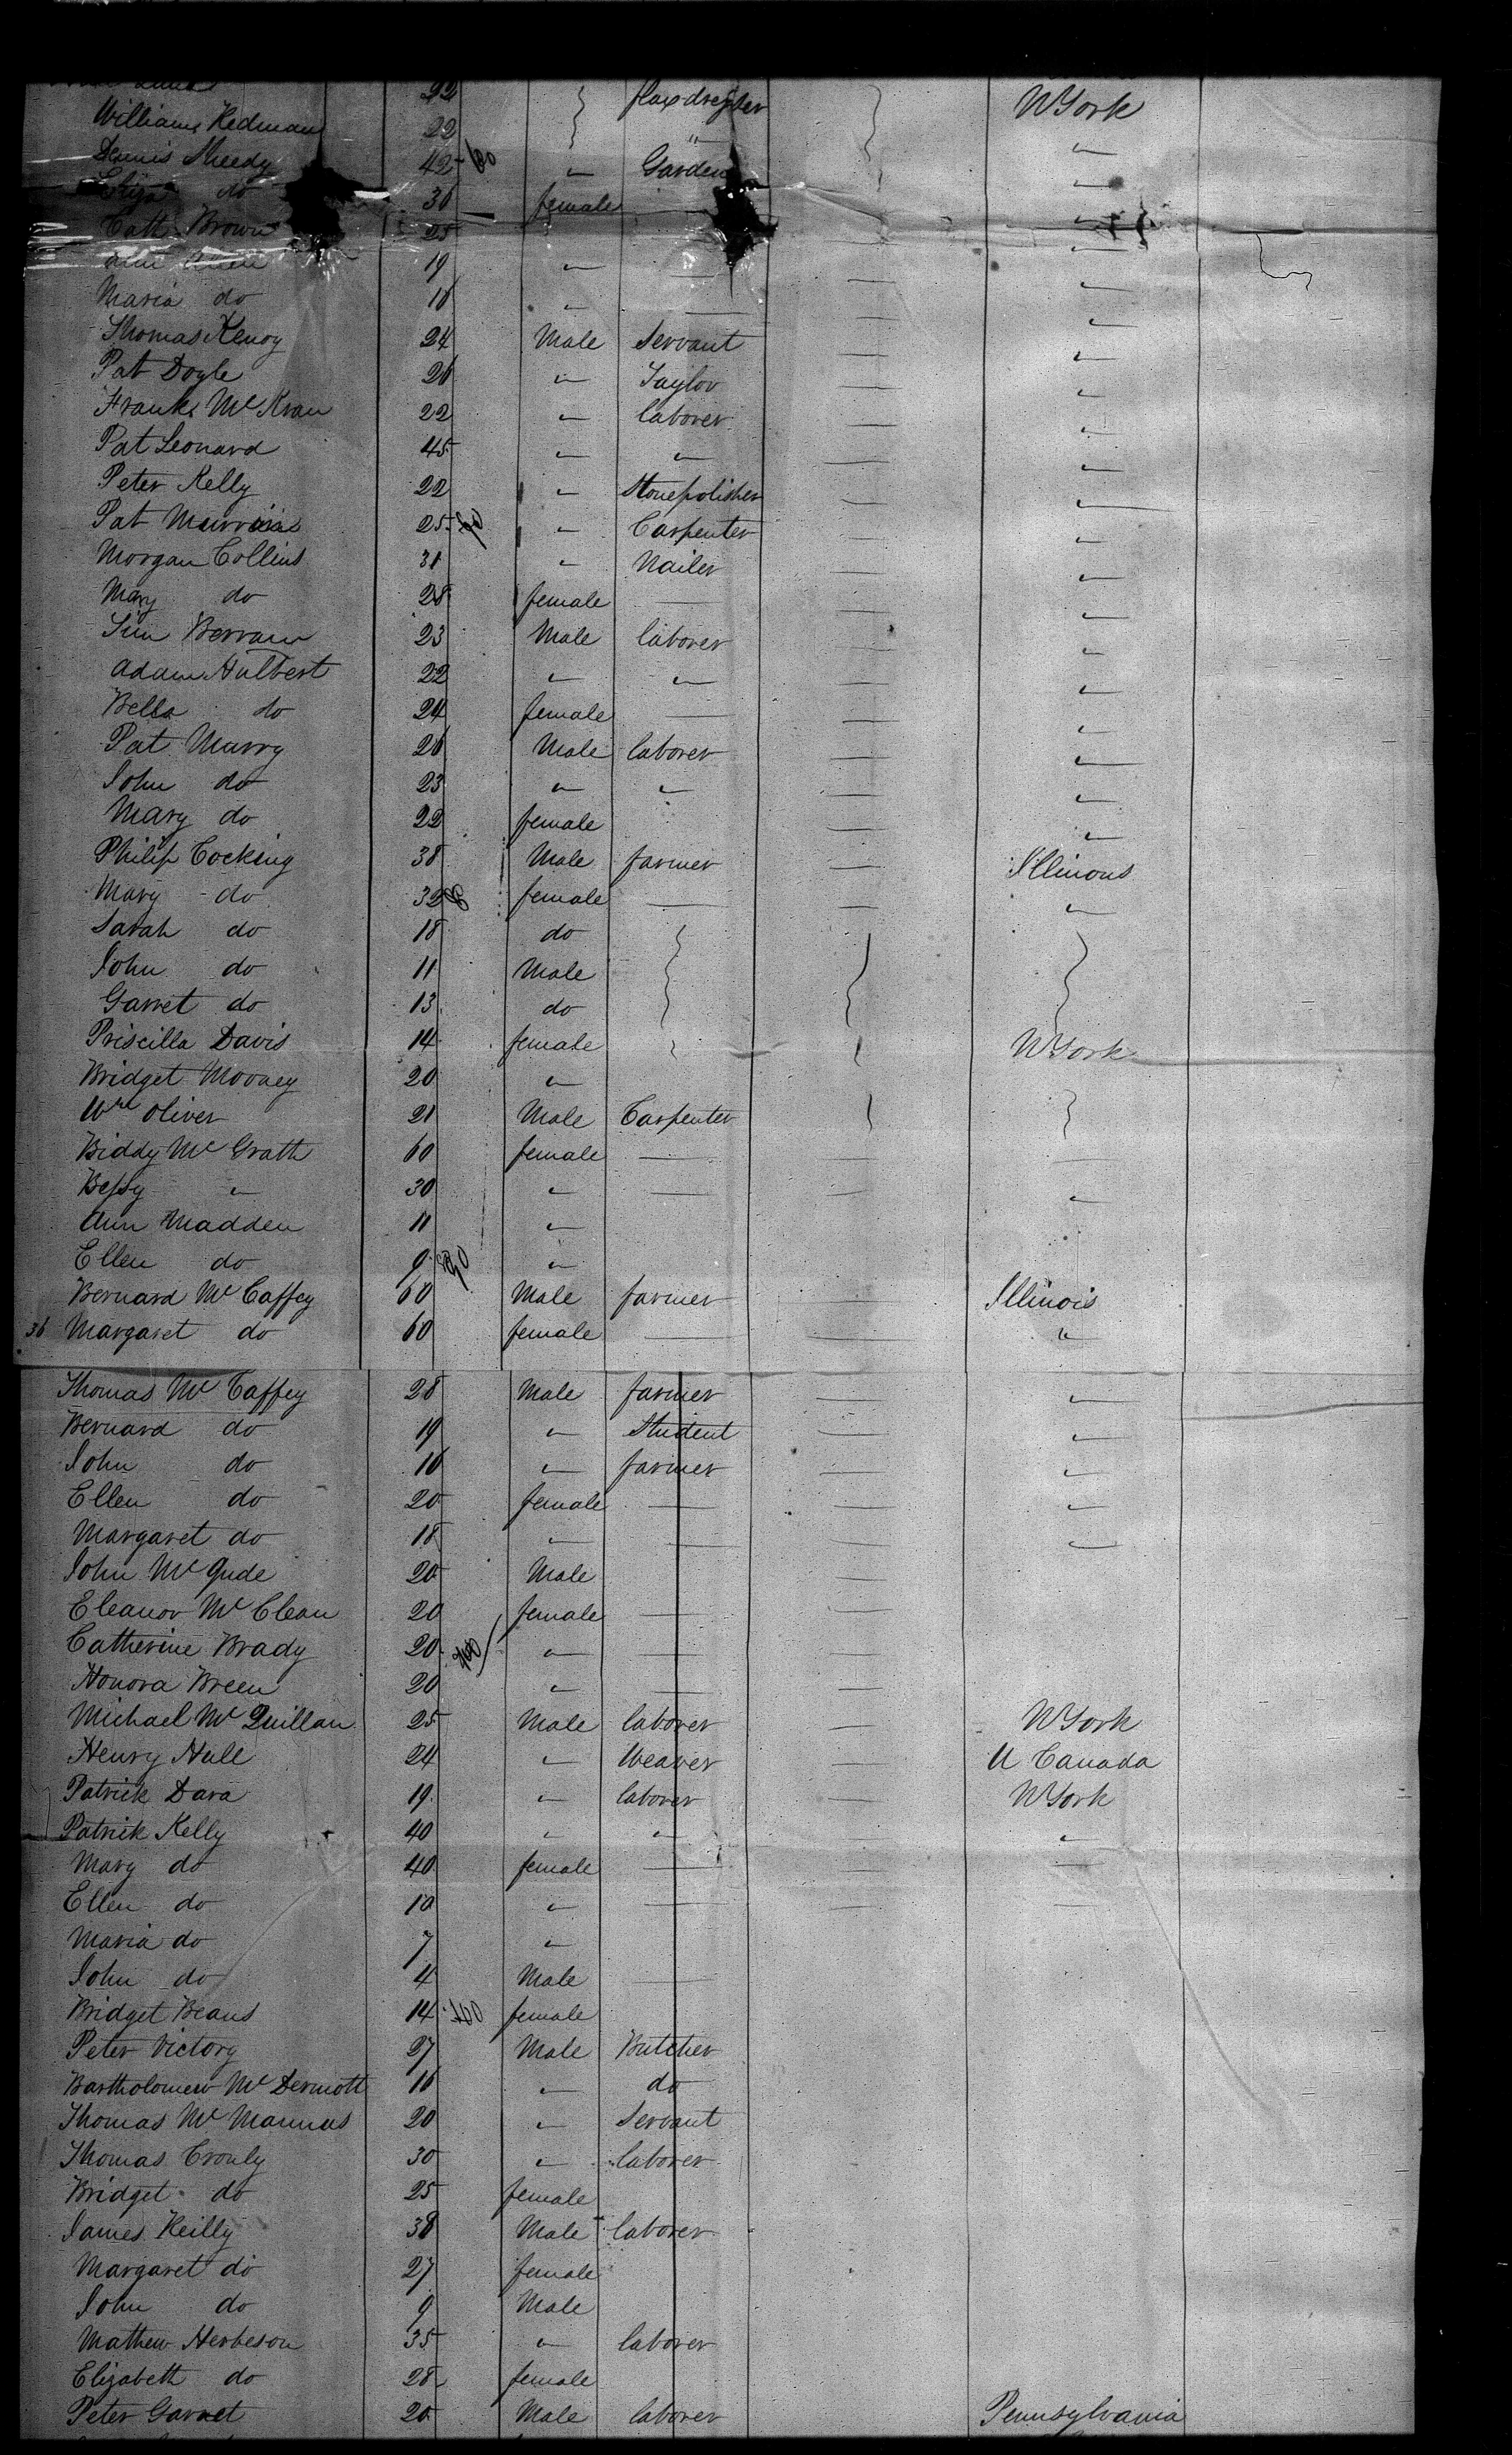 22 flaxdresser NYork
William Redman 22 "
Dennis Sheedy 42 60 " Garden "
Eliza do 36 female "
Cath Brown 25 "
Ann 19 " — — "
Maria do 18 " — — "
Thomas Kenoy 24 Male Servant — "
Pat Doyle 26 " Taylor — "
Frank Mc Kran 22 " laborer — "
Pat Leonard 45 " " — "
Peter Kelly 22 " Stonepolisher — "
Pat 25 " Carpenter — "
Morgan Collins 31 " Nailer — "
Mary do 28 female — — "
Jim 23 Male laborer — "
Adam Hulbert 22 " " — "
Bella do 24 female — — "
Pat Murry 26 Male laborer — "
John do 23 " " — "
Mary do 22 female — "
Philip Cocking 38 Male farmer — Illinous
Mary do 32 female — — "
Sarah do 18 do
John do 11 Male
Garret do 13 do
Priscilla Davis 14 female NYork
Bridget Mooney 20 "
Wm Oliver 21 Male Carpenter
Biddy Mc Grath 60 female — — —
Bessy " 30 " — — "
Ann Madden 11 "
Ellen do 9 "
Bernard Mc Caffey 60 Male farmer — Illinois
36 Margaret do 60 female — — "
Thomas Mc Caffey 28 Male farmer — "
Bernard do 19 " Student — "
John do 16 " farmer — "
Ellen do 20 female — — "
Margaret do 18 " — — "
John Mc Gude 20 Male —
Eleanor Mc Clean 20 female — —
Catherine Brady 20 " — —
Honora Breen 20 " — —
Michael Mc Quillan 25 Male laborer — NYork
Henry Hull 24 " Weaver — U Canada
Patrick Dara 19 " laborer — NYork
Patrick Kelly 40 " " — "
Mary do 40 female — — —
Ellen do 10 " — — —
Maria do 7 "
John do 4 Male —
Bridget Beaus 14 100 female
Peter Victory 27 Male Butcher
Bartholomew Mc Dermott 16 " do
Thomas Mc Mannus 20 " Servant
Thomas Cronly 30 " laborer
Bridget do 25 female
James Reilly 38 Male laborer
Margaret do 27 female
John do 9 Male
Mathew Herbeson 35 " laborer
Elizabeth do 28 female
Peter Garnet 20 Male laborer Pennsylvania